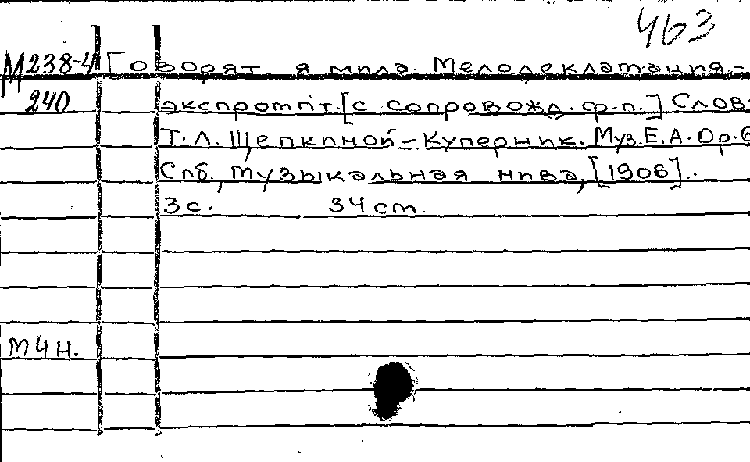 463
М238-4 Говорят я мила. Мелодекламация-
240 экспромпт. [с сопровожд. ф-п.] Слов
Т.Л. Щепкиной-Куперник. Муз. Е.А. Ор.6
Спб., Музыкальная нива, [1906].
3 с. 34 см.
МЧН.